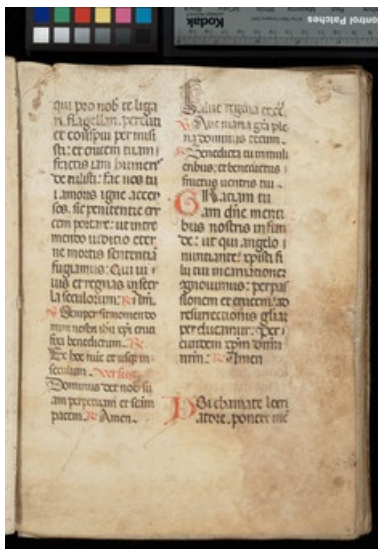 Kodak
Control Patches
qui pro nob te liga
ri. flagellari. percuti
et conspui permisi
sti: et crucem tuam i
fractis iam humeri
fac nos tu
i amoris igne accen
sos. sic penitentie cru
cem portare: ut
iudicio eter
ne mortis sententiã
fugiamus: Qui ui
uis et regnas in secu
la seculorum:
Semper sit nomen do
mini nostri ihu xpi cruci
fixi benedictum.
Ex hoc nuc et usqz in
seculum. Versus.
Dominus det nob su
am perpetuam et scam
pacem. R Amen.
Salue regina
V Aue maria gra ple
na dominus tecum.
R Benedicta tu in muli
eribus. et benedictus
fructus uentris tui.
Gratiam tu
am dne menti
bus nostris infun
de: ut qui angelo
nuntiante. xpisti fi
lii tui incarnatione
agnouimus: per pas
sionem et crucem. ad
resurrectionis gliaz
perducamur: Per
eundem xpm dnm
nrm: R Amen